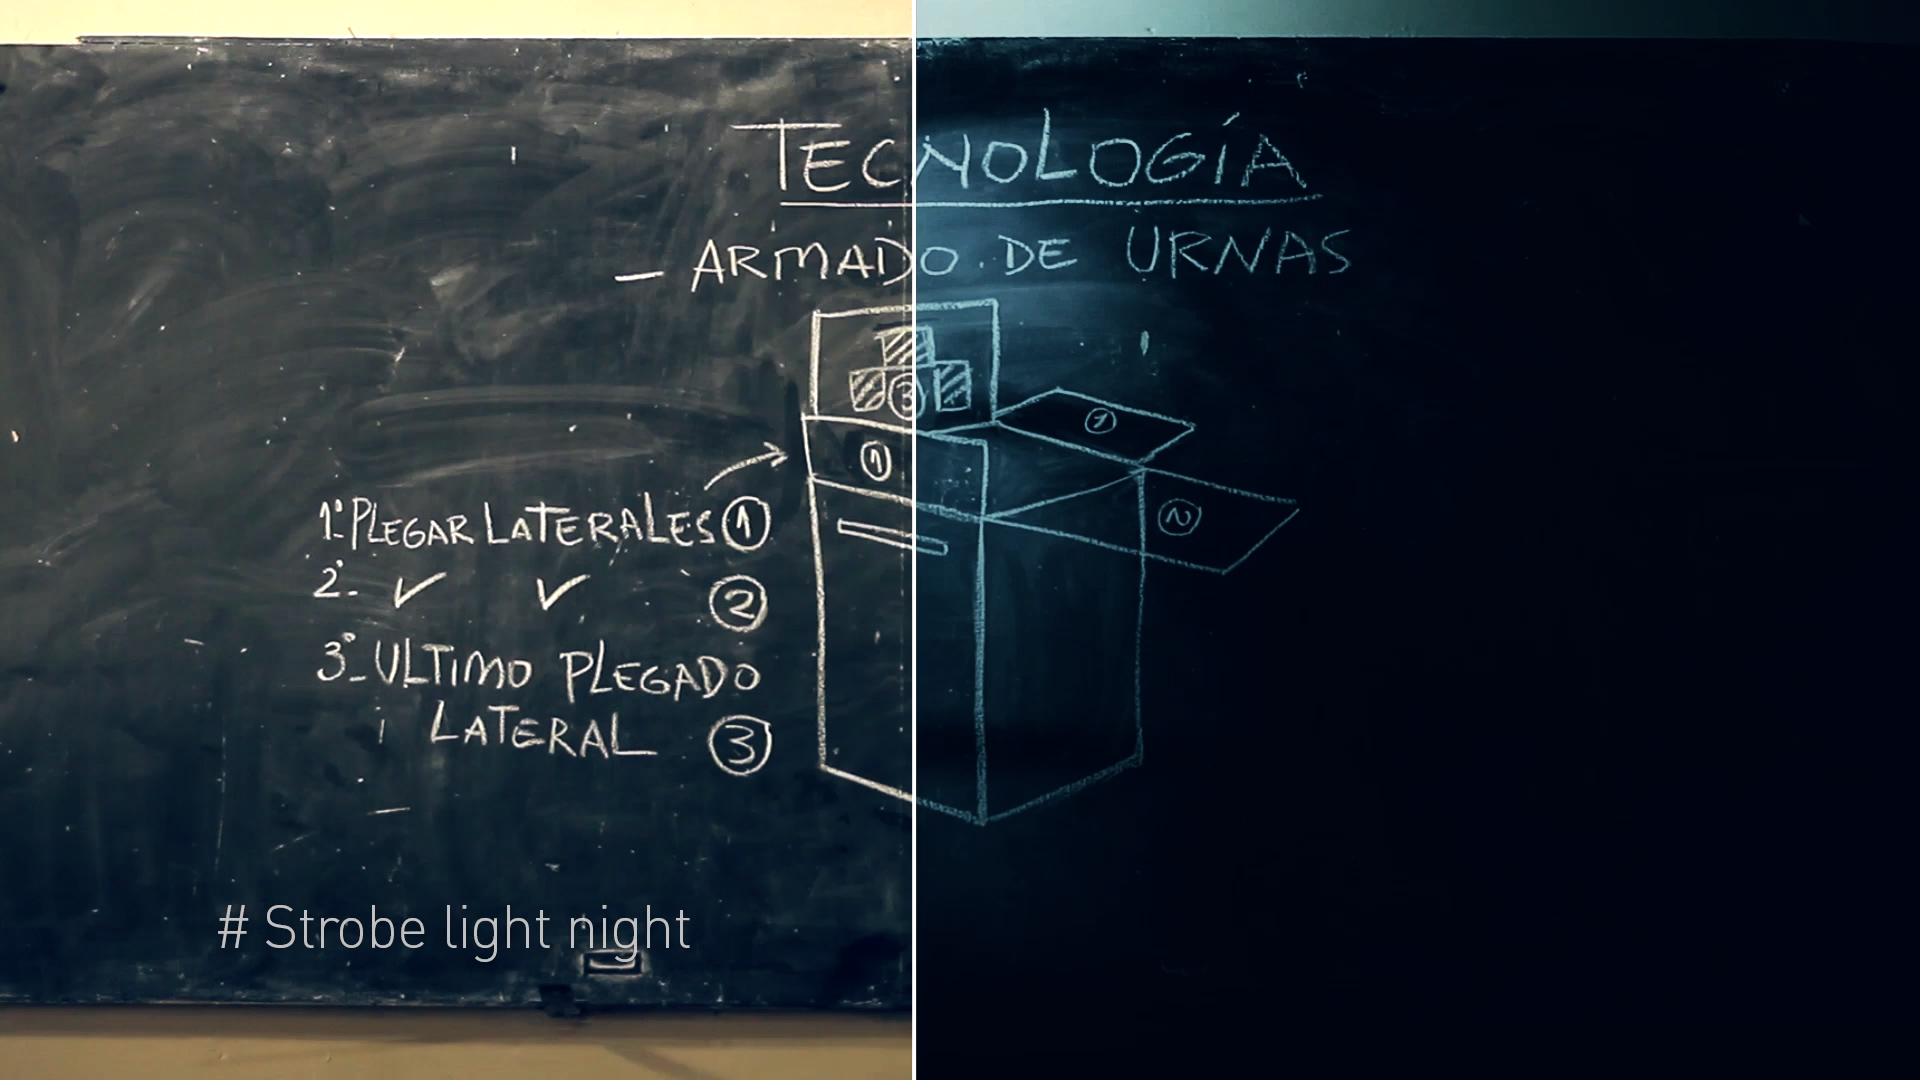 TECNOLOGÍA
- ARMADO DE URNAS
3
1
1
2
1º- PLEGAR LATERALES 1
2º- ✓ ✓ 2
3º- ULTIMO PLEGADO
LATERAL 3
# Strobe light night